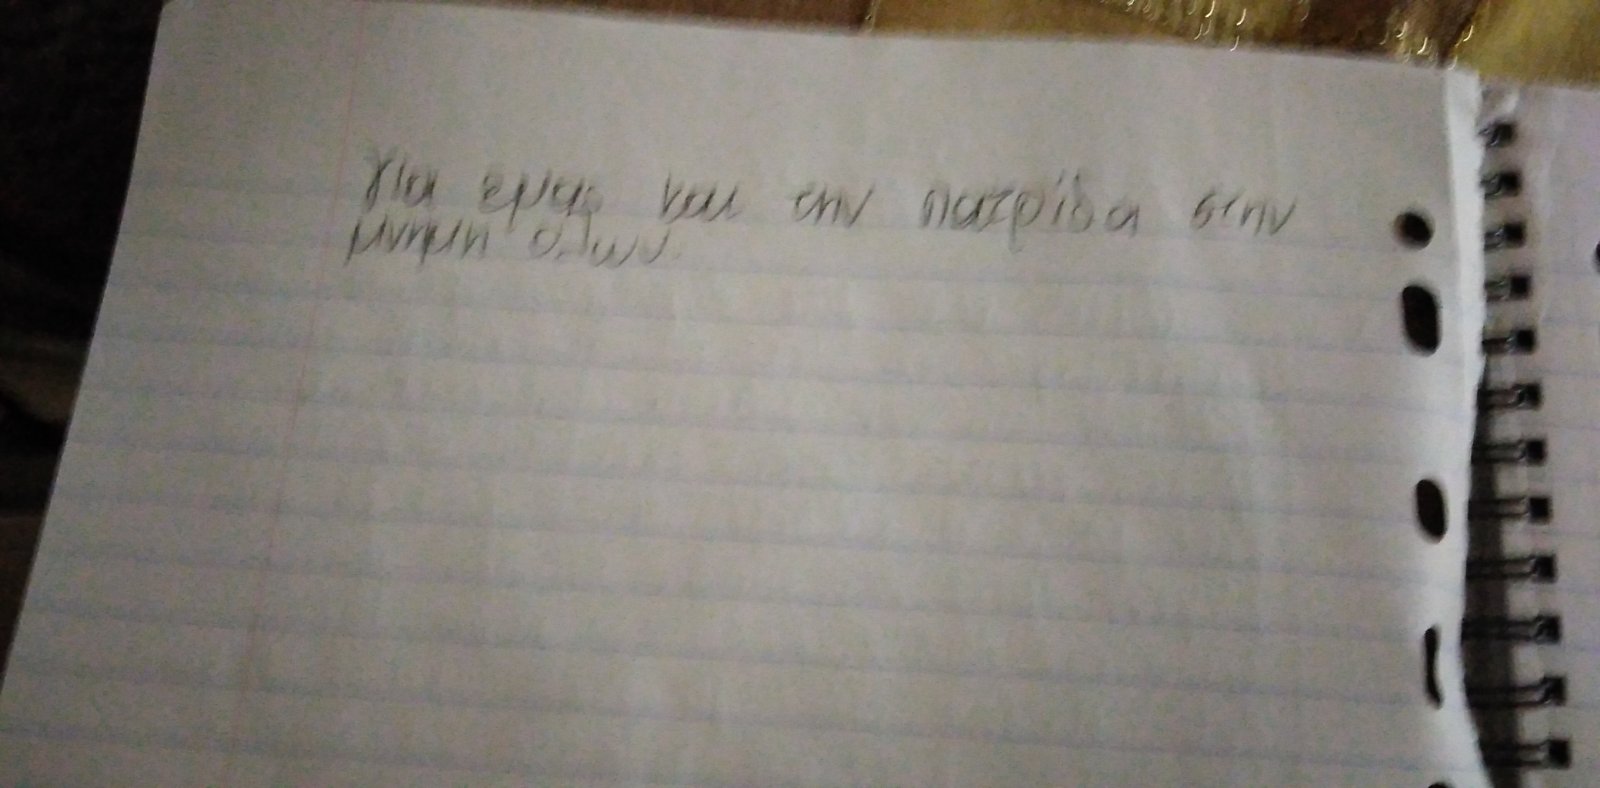 για εμας και την πατρίδα στην
μνημη όλων.